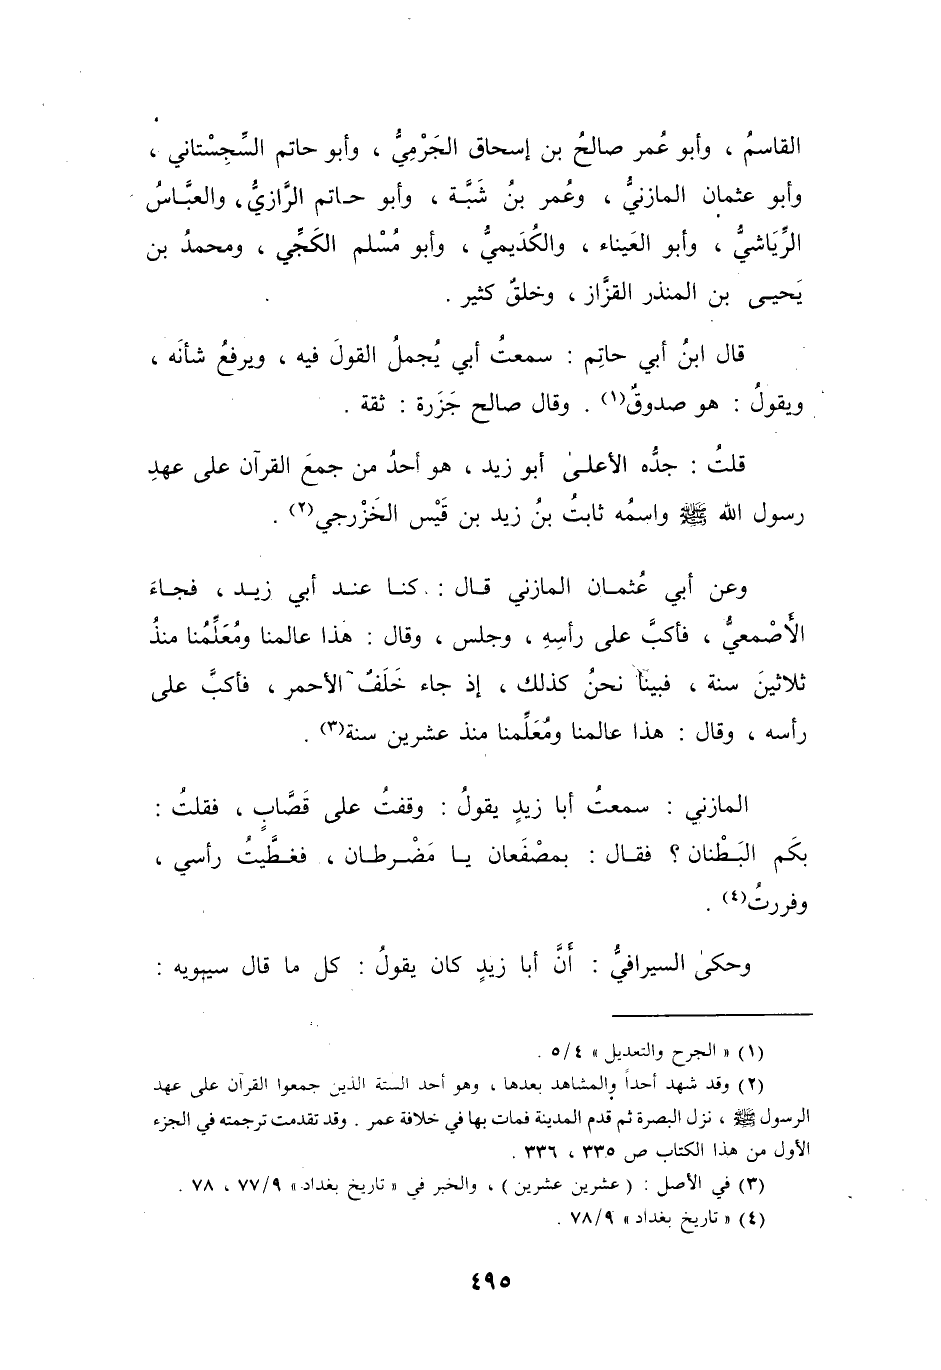 القاسمُ ، وأبو عُمر صالحُ بن إسحاق الجَرْمِيُّ ، وأبو حاتم السِّجِسْتاني ،
وأبو عثمان المازنيُّ ، وعُمر بنُ شَبَّة ، وأبو حاتم الرَّازيُّ ، والعبَّاسُ
الرِّيَاشيُّ ، وأبو العَيناء ، والكُدَيميُّ ، وأبو مُسْلم الكَجِّي ، ومحمدُ بن
يَحيى بن المنذر القزَّاز ، وخلقٌ كثير .
قال ابنُ أبي حاتِم : سمعتُ أبي يُجملُ القولَ فيه ، ويرفعُ شأنَه ،
ويقولُ : هو صدوقٌ(١) . وقال صالح جَزَرة : ثقة .
قلتُ : جدُّه الأعلىٰ أبو زيد ، هو أحدُ من جمعَ القرآن على عهدِ
رسول الله ﷺ واسمُه ثابتُ بنُ زيد بن قَيْس الخَزْرجي(٢) .
وعن أبي عُثمان المازني قال : كنا عند أبي زيد ، فجاءَ
الأَصْمعيُّ ، فأكبَّ على رأسِهِ ، وجلس ، وقال : هذا عالمنا ومُعَلِّمُنا منذُ
ثلاثينَ سنة ، فبينا نحنُ كذلك ، إذ جاء خَلَفٌ الأحمر ، فأكبَّ على
رأسه ، وقال : هذا عالمنا ومُعَلِّمنا منذ عشرين سنة(٣) .
المازني : سمعتُ أبا زيدٍ يقولُ : وقفتُ على قَصَّابٍ ، فقلتُ :
بكَم البَطْنان ؟ فقال : بمصْفَعان يا مَضْرطان ، فغطَّيتُ رأسي ،
وفررتُ(٤) .
وحكىٰ السيرافيُّ : أَنَّ أبا زيدٍ كان يقولُ : كل ما قال سيبويه :
(١) « الجرح والتعديل » ٥/٤ .
(٢) وقد شهد أحداً والمشاهد بعدها ، وهو أحد الستة الذين جمعوا القرآن على عهد
الرسول ﷺ ، نزل البصرة ثم قدم المدينة فمات بها في خلافة عمر . وقد تقدمت ترجمته في الجزء
الأول من هذا الكتاب ص ٣٣٥ ، ٣٣٦ .
(٣) في الأصل : ( عشرين عشرين ) ، والخبر في « تاريخ بغداد » ٧٧/٩ ، ٧٨ .
(٤) « تاريخ بغداد » ٧٨/٩ .
٤٩٥